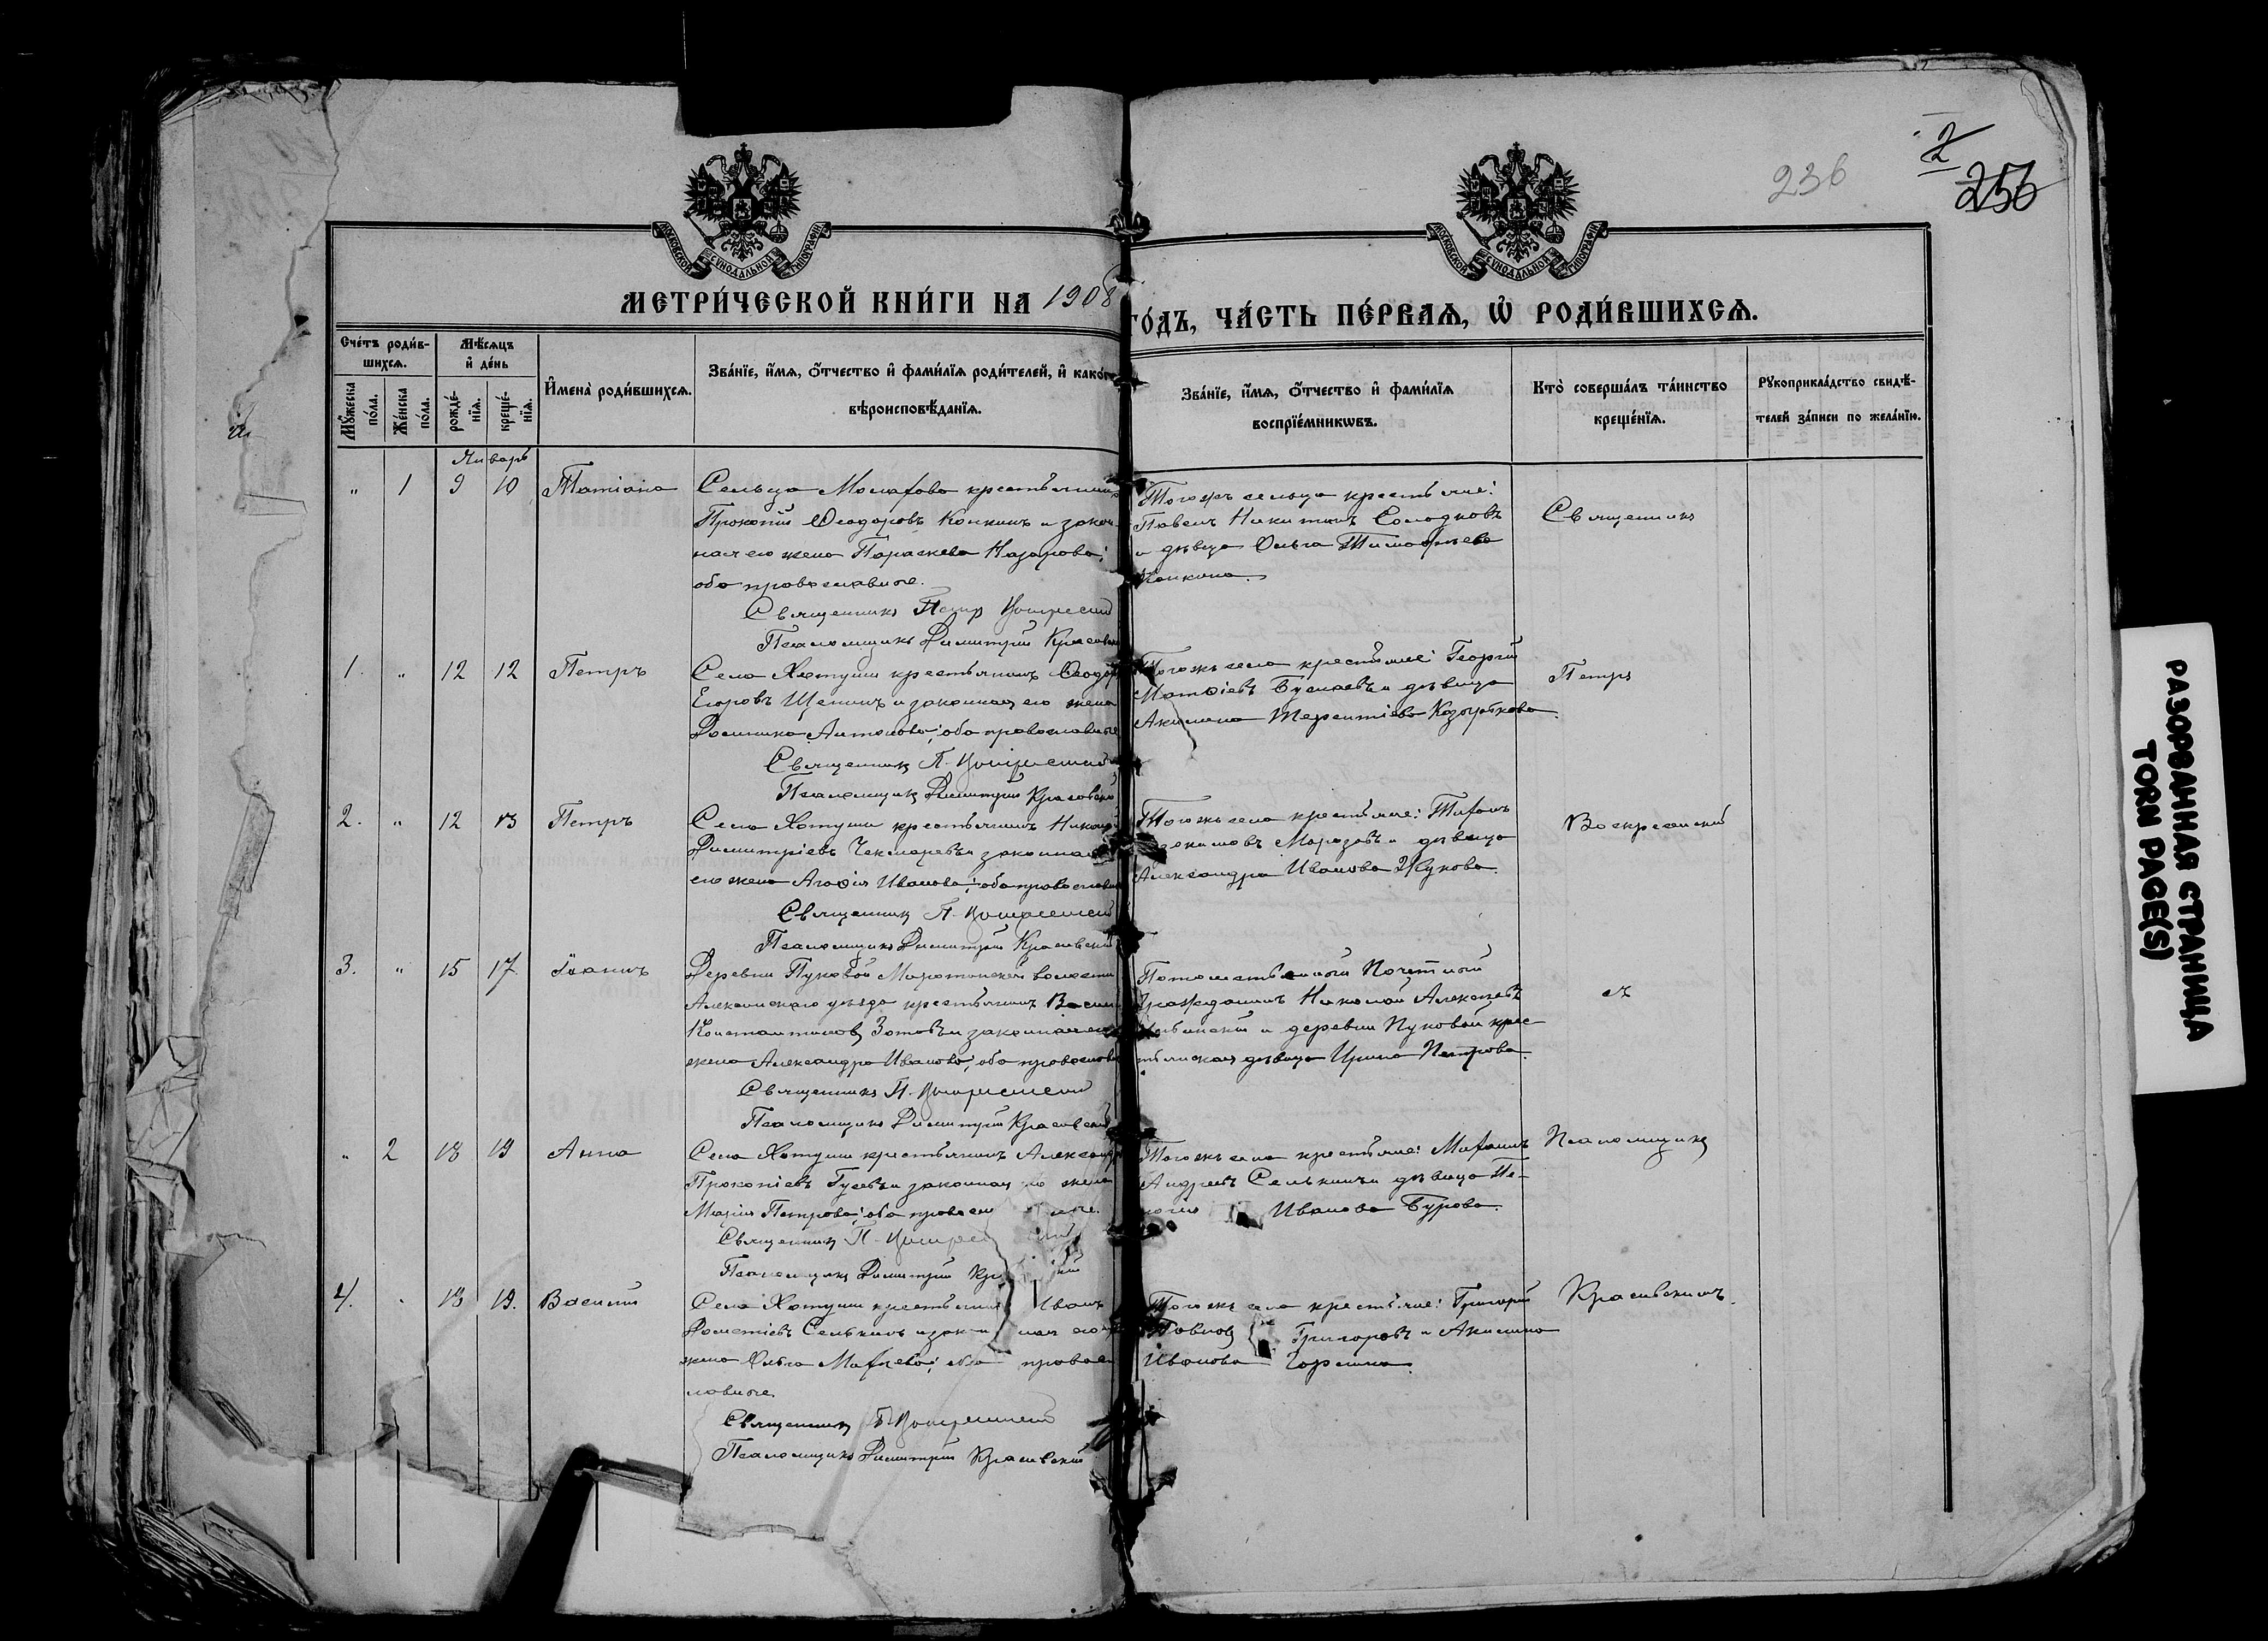 236
2
256
МОСКОВСКОЙ СѴНОДАЛЬНОЙ ТИПОГРАФІИ
МОСКОВСКОЙ СѴНОДАЛЬНОЙ ТИПОГРАФІИ
МЕТРИ́ЧЕСКОЙ КНИ́ГИ НА 1908
ГО́ДЪ, ЧА́СТЬ ПЕ́РВАѦ, Ѡ҆ РОДИ́ВШИХСѦ.
Сче́тъ роди́в-
шихсѧ.
Мꙋ́жеска по́ла.
Же́нска по́ла.
Мѣ́сѧцъ
и҆ де́нь
рожде́-
нїѧ.
креще́-
нїѧ.
И҆мена̀ роди́вшихсѧ.
Зва́нїе, и҆́мѧ, ѻ҆́тчество и҆ фами́лїѧ роди́телей, и҆ како́гѡ
вѣроисповѣ́данїѧ.
Зва́нїе, и҆́мѧ, ѻ҆́тчество и҆ фами́лїѧ
воспрїе́мникѡвъ.
Кто̀ соверша́лъ та́инство
креще́нїѧ.
Рꙋкоприкла́дство свидѣ́-
телей за́писи по жела́нїю.
Январь
" 1 9 10 Татіана
Сельца крестьянинъ
Прокопій Ѳеодоровъ Конкинъ и закон-
ная его жена Параскева Назарова;
оба православные.
Священникъ Петр Воскресенский
Псаломщикъ Димитрій Красовскій
Тогожъ сельца крестьяне:
Павелъ Никитинъ Солодковъ
и дѣвица Ольга Тимоѳеева
Конкина.
Священникъ
1. " 12 12 Петръ
Села Хотуши крестьянинъ Ѳеодоръ
Егоровъ Щенинъ и законная его жена
Домника Антонова; оба православные
Священникъ П. Воскресенский
Псаломщикъ Димитрій Красовскій
Тогожъ села крестьяне: Георгій
Матѳіевъ и дѣвица
Акилина Терентіева
Петръ
2. " 12 13 Петръ
Села Хотуши крестьянинъ Николай
Димитріевъ Чекмаревъ и законная
его жена Агаѳія Иванова; оба православные
Священникъ П. Воскресенский
Псаломщикъ Димитрій Красовскій
Тогожъ села крестьяне: Тихонъ
Морозовъ и дѣвица
Александра Иванова Жукова.
Воскресенскій
3. " 15 17 Іоаннъ
Деревни Пуковой волости
Алексинскаго уѣзда крестьянинъ Василій
Константиновъ Зотовъ и законная его
жена Александра Иванова; оба православные
Священникъ П. Воскресенский
Псаломщикъ Димитрій Красовскій
Потомственный Почетный
Гражданинъ Николай Алексѣевъ
и деревни Пуковой крес-
тьянская дѣвица Ирина Петрова.
съ
" 2 18 19 Анна
Села Хотуши крестьянинъ Александръ
Прокопіевъ Гусевъ и законная его жена
Марія Петрова; оба православные.
Священникъ П. Воскресенский
Псаломщикъ Димитрій Красовскій
Тогожъ села крестьяне:
Андреевъ Селькинъ и дѣвица Пе-
лагія Иванова Бурова.
Псаломщикъ
4. " 18 19. Василій
Села Хотуши крестьянинъ Иванъ
Дометіевъ Селькинъ и законная его
жена Ольга оба правос-
лавные.
Священникъ П. Воскресенский
Псаломщикъ Димитрій Красовскій
Тогожъ села крестьяне: Григорій
Павловъ Григоровъ и Акилина
Иванова Горшина.
Красовскимъ.
РАЗОРВАННАЯ СТРАНИЦА
TORN PAGE(S)